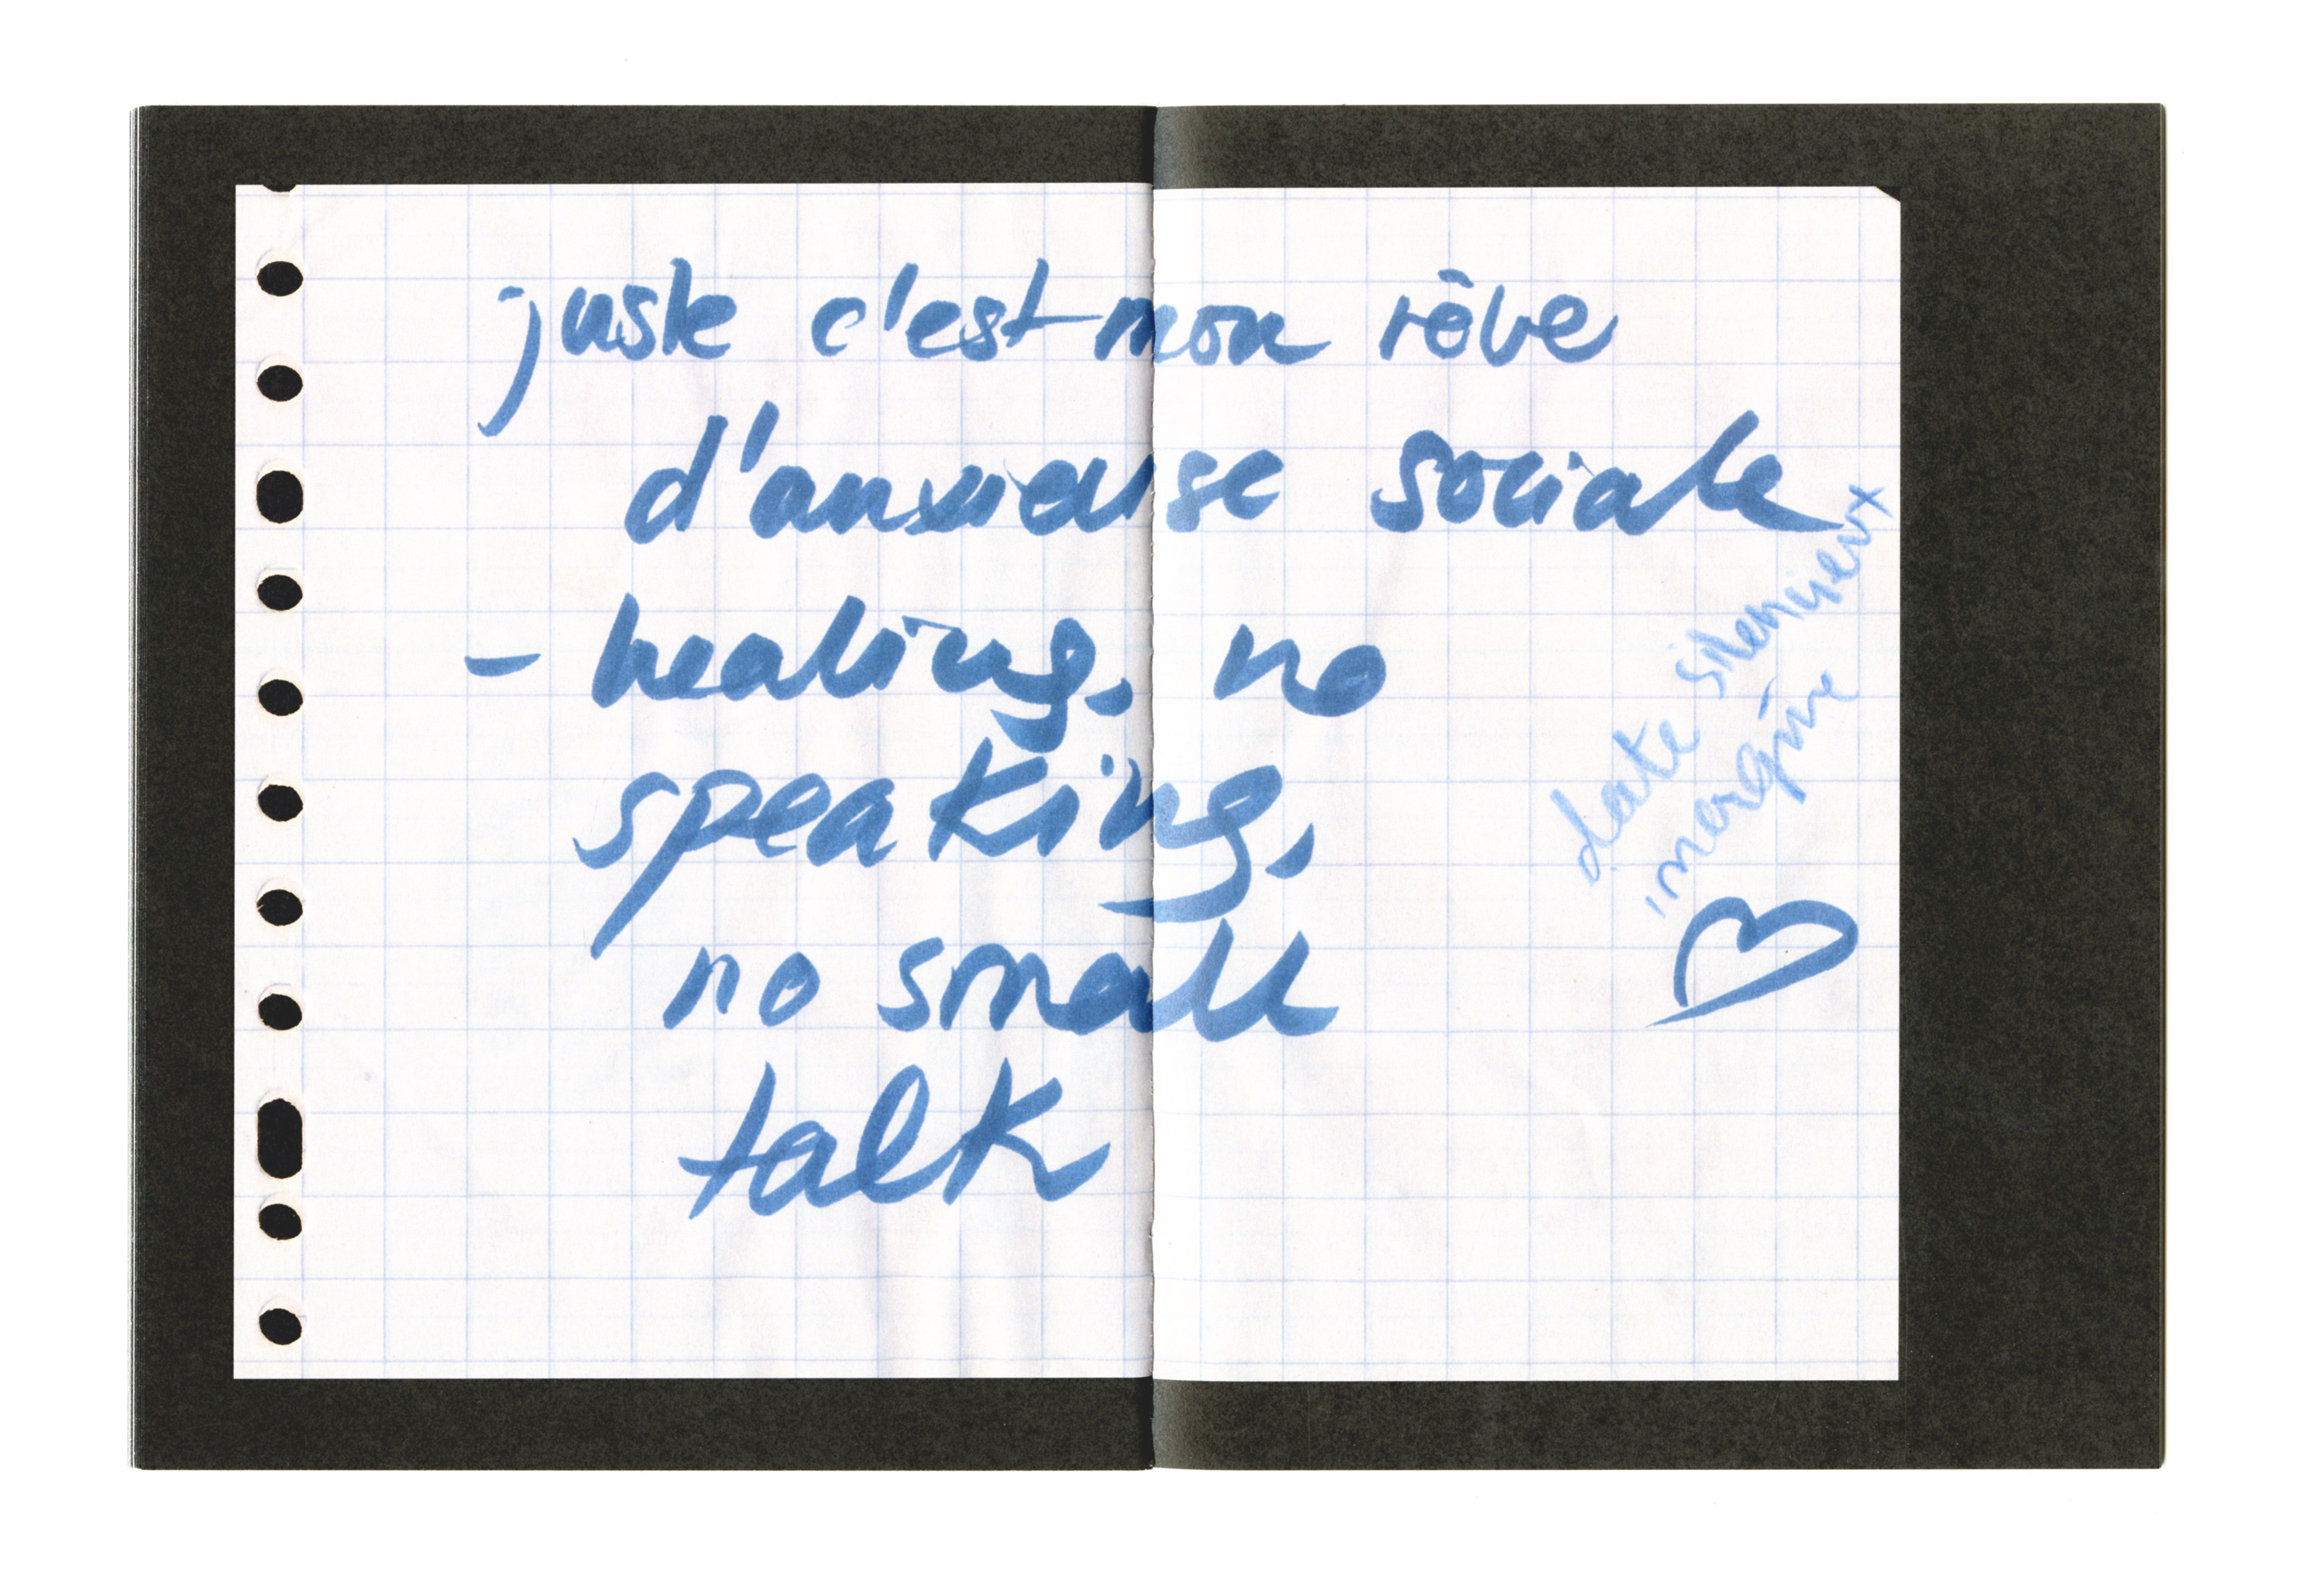 juste c'est mon rêve
d'anxieuse sociale
- healing, no
speaking,
no small
talk
date silencieux
imagine